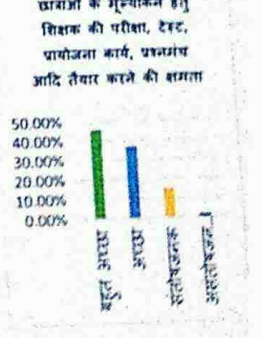 छात्राओं के मूल्यांकन हेतु
शिक्षक की परीक्षा, टेस्ट,
प्रायोजना कार्य, प्रश्नमंच
आदि तैयार करने की क्षमता
50.00%
40.00%
30.00%
20.00%
10.00%
0.00%
बहुत अच्छा
अच्छा
संतोषजनक
असंतोषजन…